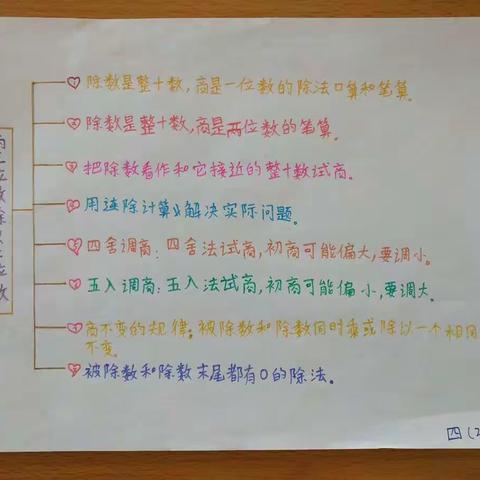 两三位数除以两位数
①除数是整十数,商是一位数的除法口算和笔算.
②除数是整十数,商是两位数的笔算。
③把除数看作和它接近的整十数试商。
④用连除计算解决实际问题。
⑤四舍调商:四舍法试商,初商可能偏大,要调小。
⑥五入调商:五入法试商,初商可能偏小,要调大。
⑦商不变的规律:被除数和除数同时乘或除以一个相同
不变.
⑧被除数和除数末尾都有0的除法。
四(2